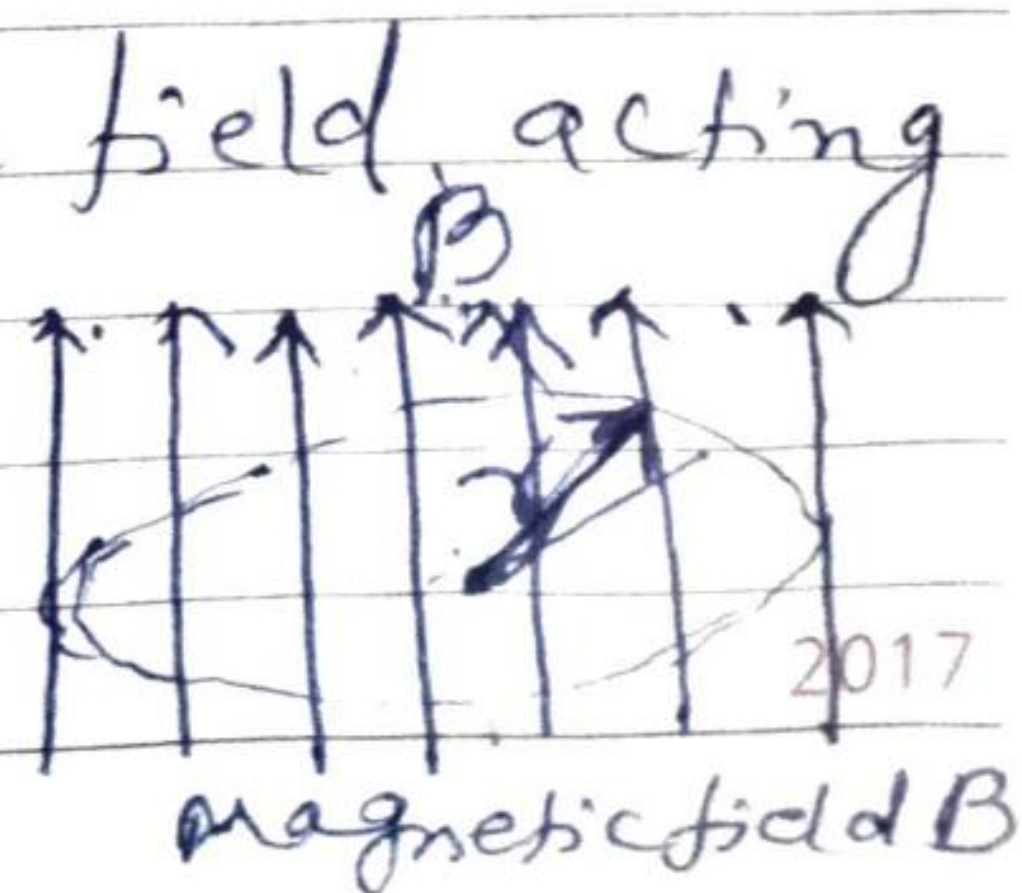 field acting
B
2017
magnetic field B